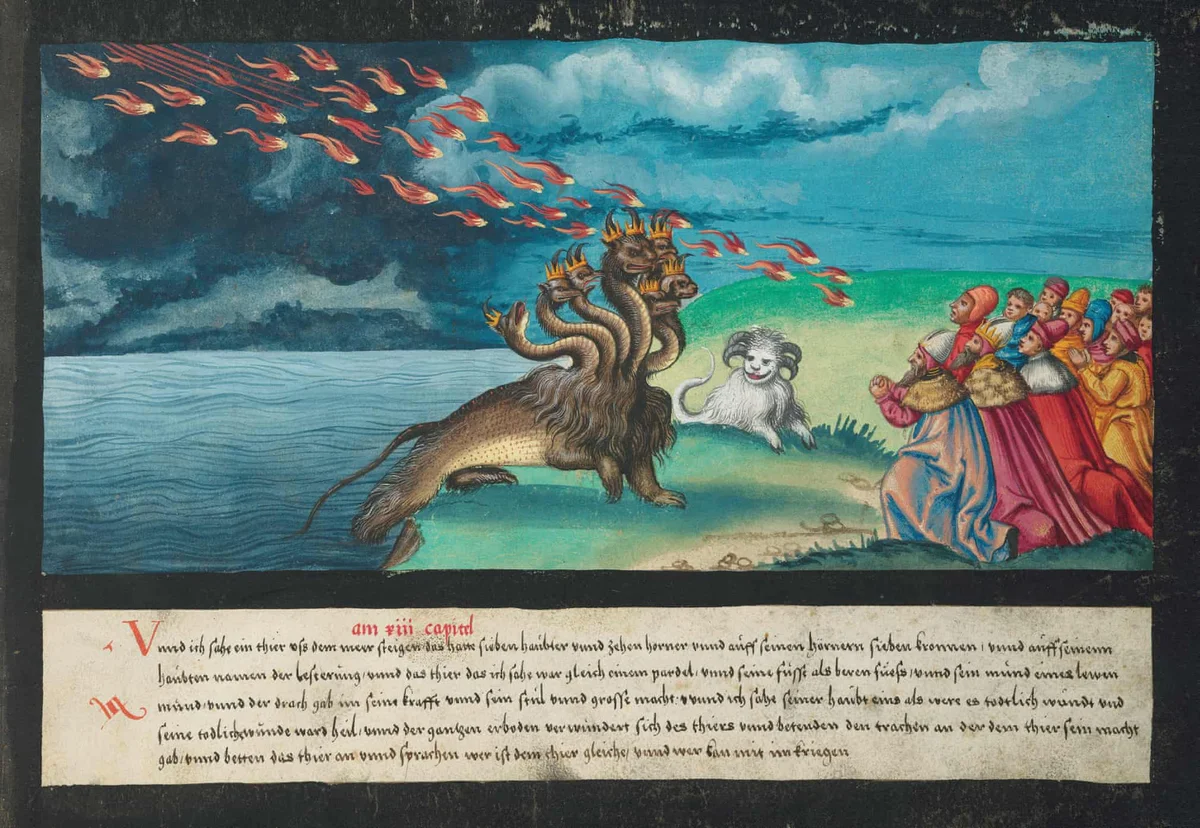 am xiii capitel
Vnnd ich sahe ein thier vß dem meer steigen das hatte sieben haubter vnnd zehen horner vnnd auff seinen hornern sieben kronnen / vnnd auff seinenn
haubten namen der lesterung / vnnd das thier das ich sahe war gleich einem pardel / vnnd seine füsse als beren füess / vnnd sein mund eines lewen
mund / vnnd der drach gab im seine krafft vnnd sein stül vnnd grosse macht / vnnd ich sahe seiner haubt eins als were es todtlich wundt vnd
seine todlich wunde ward heil / vnnd der gantzen erdboden verwundert sich des thiers vnnd betenden den trachen an der dem thier sein macht
gab / vnnd betten das thier an vnnd sprachen wer ist dem thier gleiche / vnnd wer kan mit im kriegen